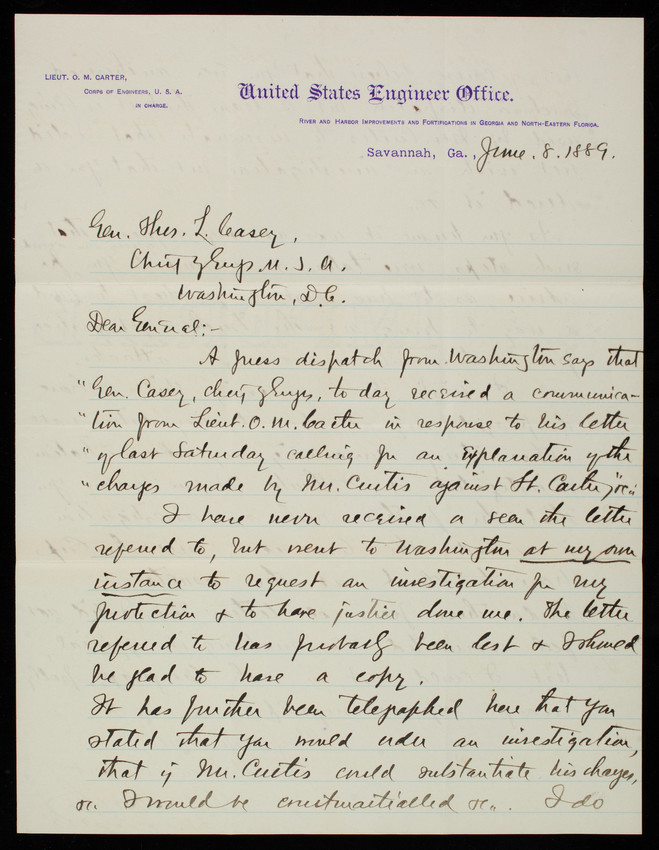 LIEUT. O. M. CARTER,
CORPS OF ENGINEERS, U. S. A.
IN CHARGE.
United States Engineer Office.
RIVER AND HARBOR IMPROVEMENTS AND FORTIFICATIONS IN GEORGIA AND NORTH-EASTERN FLORIDA.
Savannah, Ga., June. 8. 1889.
Gen. Thos. L. Casey,
Chief of Engrs. U. S. A.
Washington, D.C.
Dear General:-
A press dispatch from Washington says that
"Gen. Casey, chief of Engrs, to day received a communica-
"tion from Lieut. O. M. Carter in response to his letter
"of last Saturday calling for an explanation of the
"charges made by Mr. Curtis against Lt. Carter," &c.
I have never received or seen the letter
referred to, but went to Washington at my own
instance to request an investigation for my
protection & to have justice done me. The letter
referred to has probably been lost & I should
be glad to have a copy.
It has further been telegraphed here that you
stated that you would order an investigation,
that if Mr. Curtis could substantiate his charges,
&c. I would be courtmartialled &c. I do